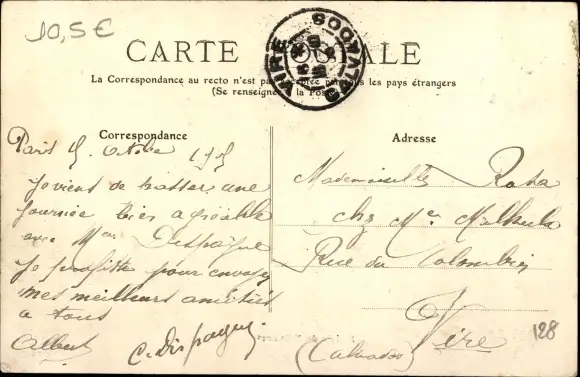 10,5€
CARTE POSTALE
La Correspondance au recto n'est pas acceptée par tous les pays étrangers
(Se renseigner à la Poste)
VIRE CALVADOS
Correspondance
Adresse
Paris 15 Octobre 1905
Je viens de passer une
journée bien agréable
avec Mer Despagne
Je profite pour envoyer
mes meilleurs amitiés
a tous
Albert C. Despagne
Mademoiselle Rosa
chz Mer
Rue du Colombier
Vire
(Calvados)
128